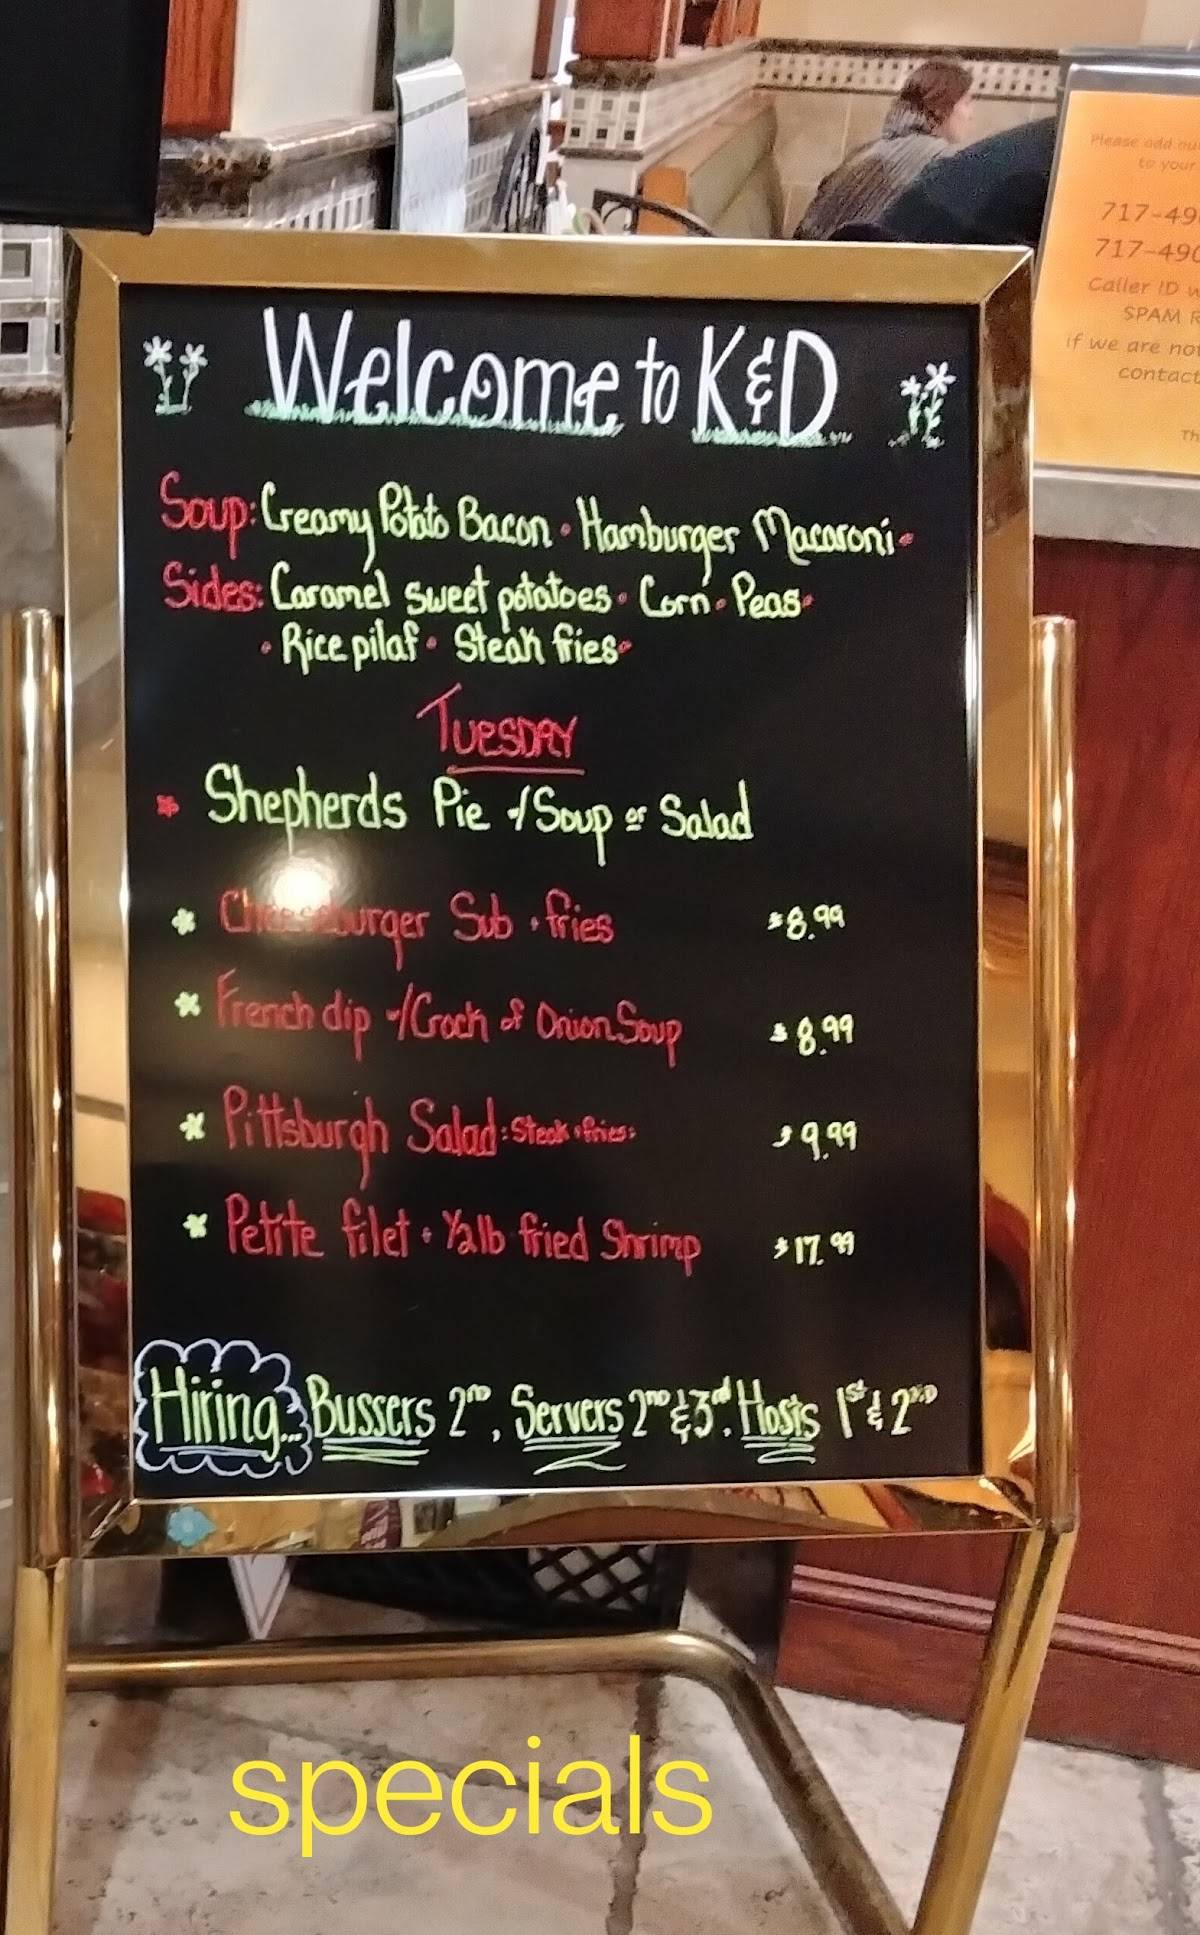 Welcome to K&D
Soup: Creamy Potato Bacon • Hamburger Macaroni •
Sides: Caramel sweet potatoes • Corn • Peas •
• Rice pilaf • Steak fries •
TUESDAY
* Shepherds Pie w/Soup or Salad
* Cheeseburger Sub + fries $8.99
* French dip w/Crock of Onion Soup $8.99
* Pittsburgh Salad: Steak + fries: $9.99
* Petite filet + 1/2 lb fried Shrimp $17.99
Hiring... Bussers 2nd, Servers 2nd & 3rd, Hosts 1st & 2nd
specials
Please add ou
to your
717-49
717-490
Caller ID w
SPAM R
if we are not
contact
Th